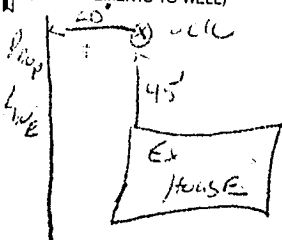 TO WELL)
20'
WELL
Prop
LINE
45'
Ex
HOUSE